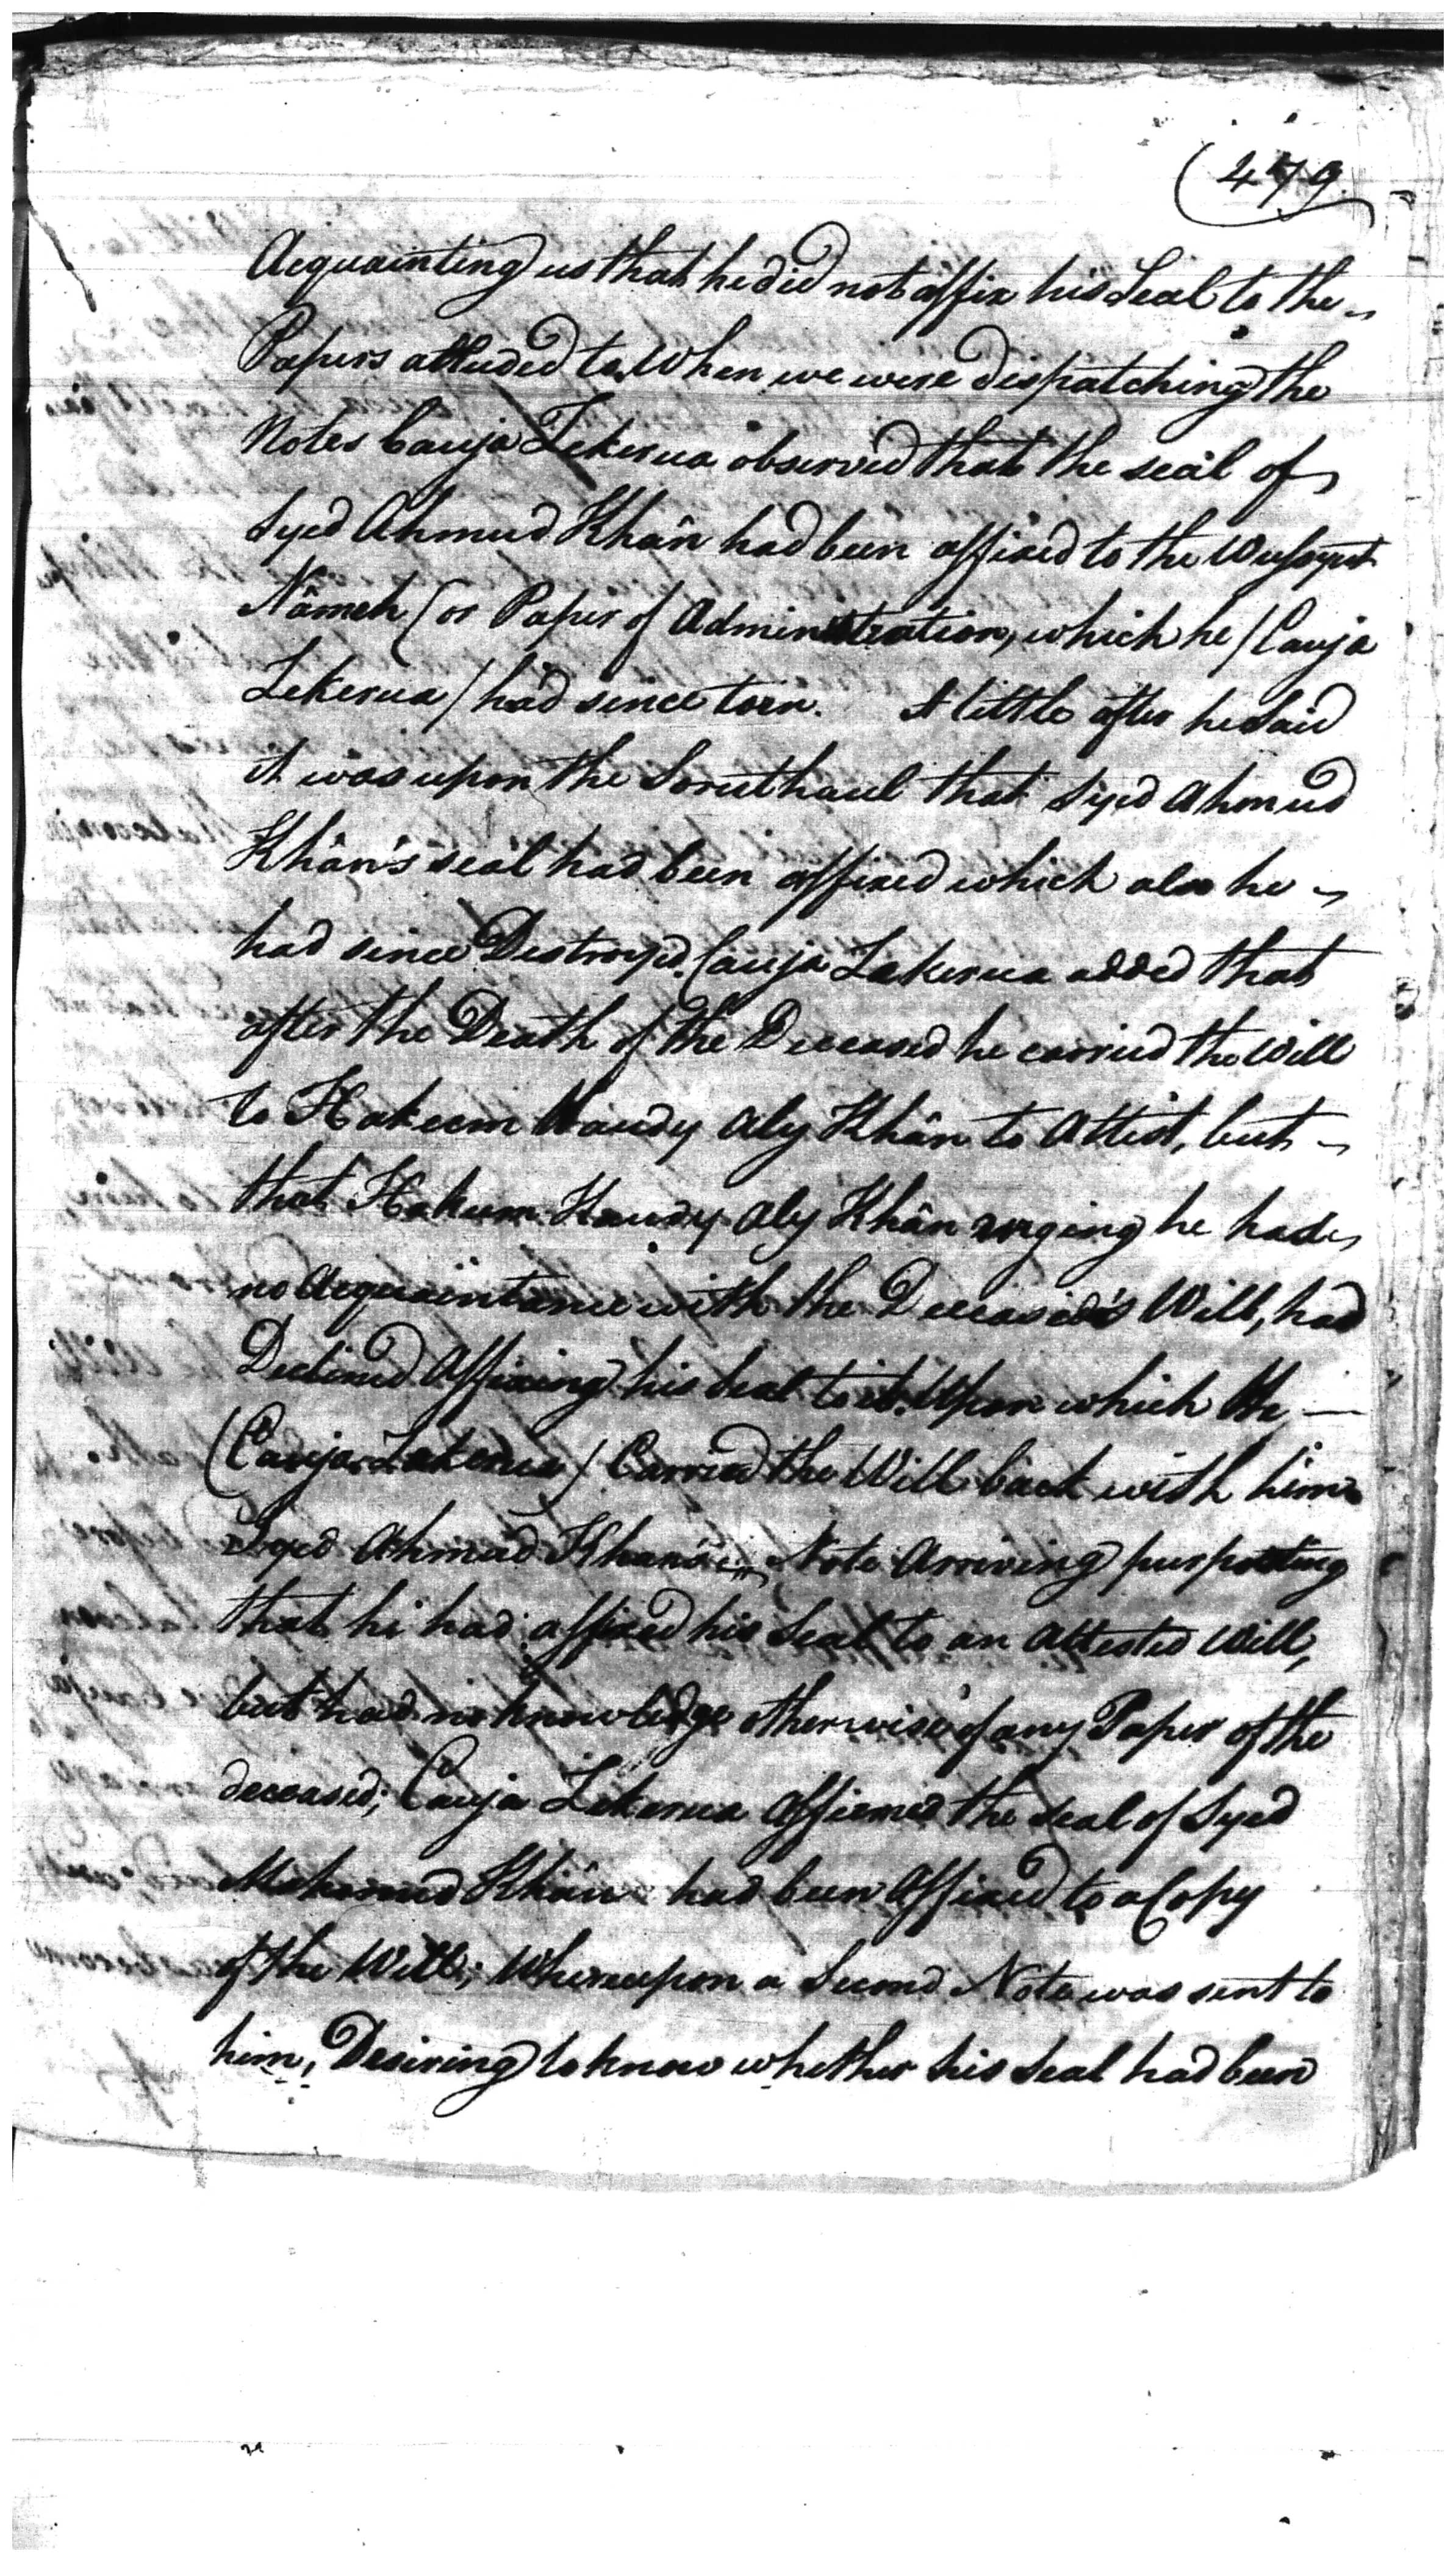 (479
Acquainting us that he did not affix his Seal to the
Papers alluded to. When we were dispatching the
Notes Cauja Zekerua observed that the seal of
Syed Ahmud Khân had been affixed to the Wusyut
Nâmeh (or Paper of Administration, which he / Cauja
Zekerua / had since torn. A little after he said
it was upon the Soruthaul that Syed Ahmud
Khân's seal had been affixed which also he
had since Destroyed. Cauja Zakerua added that
after the Death of the Deceased he carried the Will
to Hakeem Haudy Aly Khân to Attest, but
that Hakeem Haudy Aly Khân urging he had
no Acquaintance with the Deceased's Will, had
Declined Affixing his Seal to it. Upon which He
(Cauja Zakerua / Carried the Will back with him
Syed Ahmud Khan's Note Arriving purporting
that he had affixed his Seal to an Attested Will,
but had no knowledge otherwise of any Paper of the
deceased; Cauja Zekerua Affirmed the Seal of Syed
Mahomud Khân had been Affixed to a Copy
of the Will; Whereupon a Second Note was sent to
him, Desiring to know whether his Seal had been